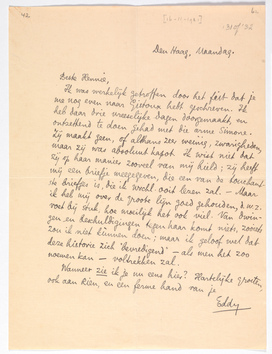 42.
6.
[16-11-'31]
31 of '32
Den Haag, Maandag.
Beste Hennie,
Ik was werkelijk getroffen door het feit dat je
me nog even naar Gistoux hebt geschreven. Ik
heb daar drie vreeselijke dagen doorgemaakt, en
ontzettend te doen gehad met die arme Simone.
Zij maakt geen, of althans zeer weinig, zwarigheden,
maar zij was absoluut kapot. Ik wist niet dat
zij op haar manier zooveel van mij hield; zij heeft
mij een briefje meegegeven, die een van de
briefjes is, die ik wellicht ooit lezen zal. — Maar
ik heb mij over de groote lijn goed gehouden, d.w.z.
voet bij stuk, hoe moeilijk het ook viel. Van dwin-
gen en beschuldigingen tegen haar komt niets, zooiets
zou ik niet kunnen doen; maar ik geloof wel dat
deze historie zich "bevredigend" — als men het zoo
noemen kan — voltrekken zal.
Wanneer zie ik je nu eens hier? Hartelijke groeten,
ook aan Rien, en een ferme hand van je
Eddy